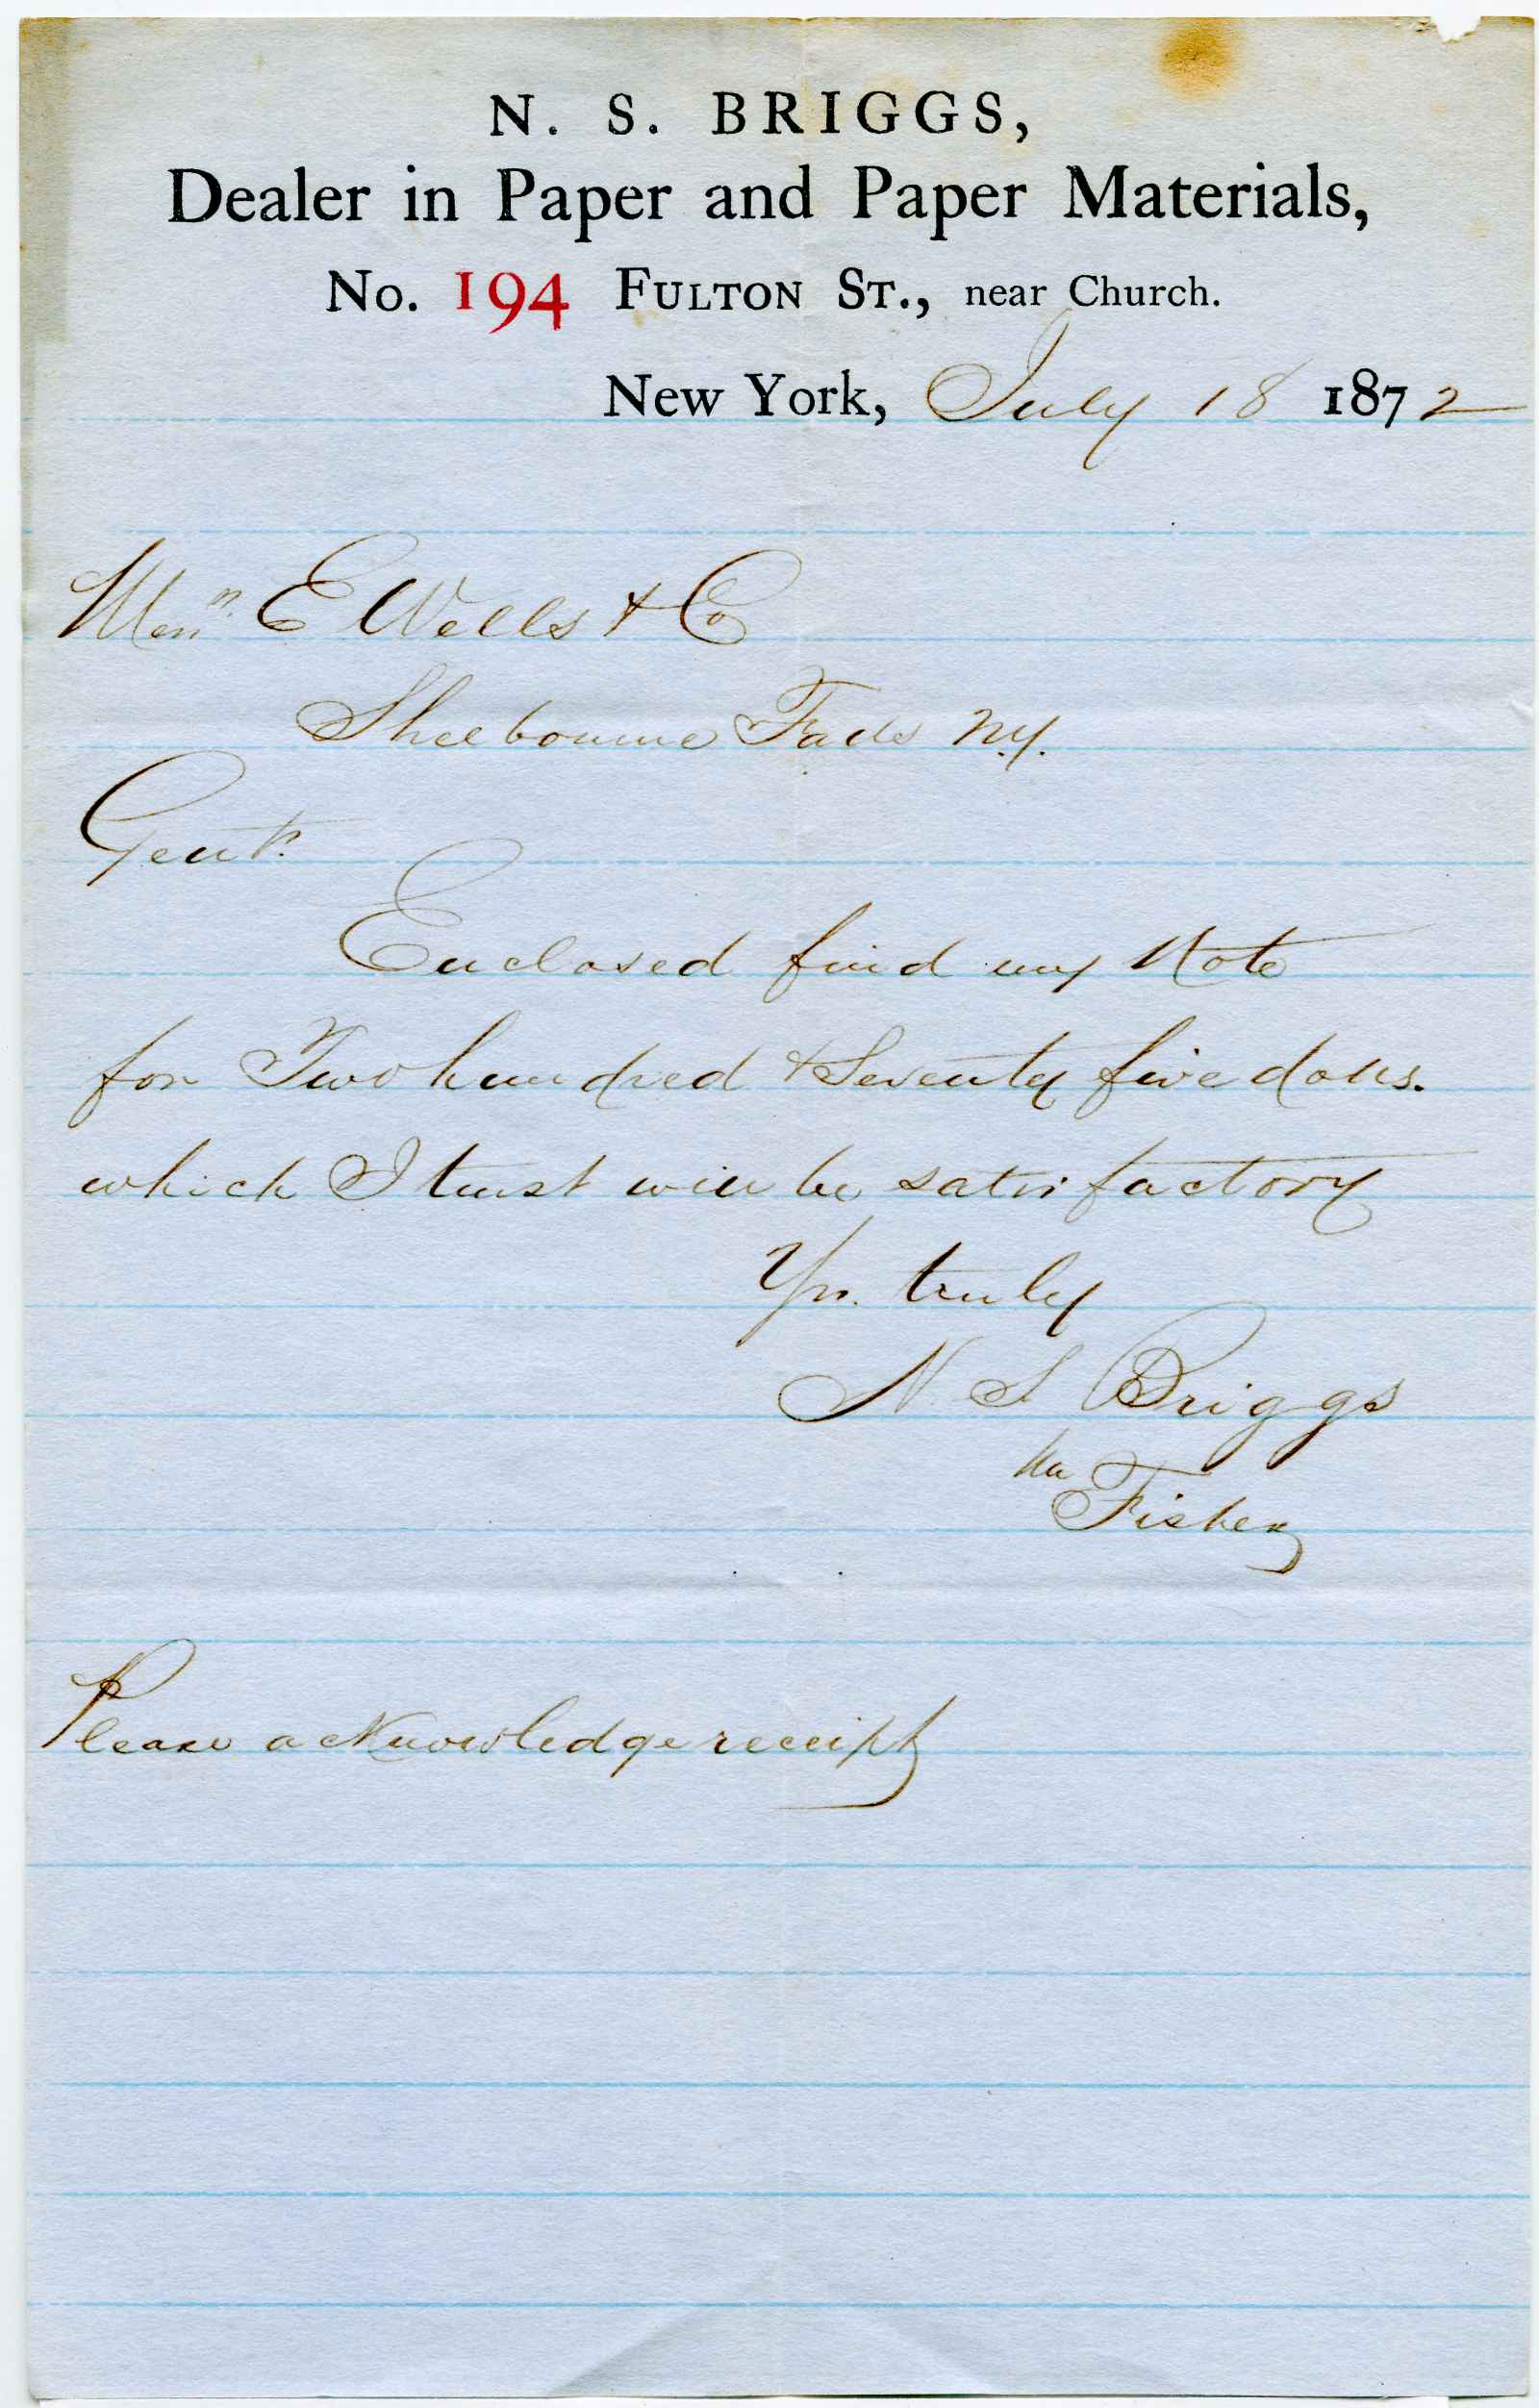 N. S. BRIGGS,
Dealer in Paper and Paper Materials,
No. 194 FULTON ST., near Church.
New York, July 18 1872
Messrs. E Wells & Co
Shelbourne Falls N.Y.
Gents.
Enclosed find my Note
for Two hundred & Seventy five dolls.
which I trust will be satisfactory
Yrs. truly
N S Briggs
Fisher
Please acknowledge receipt